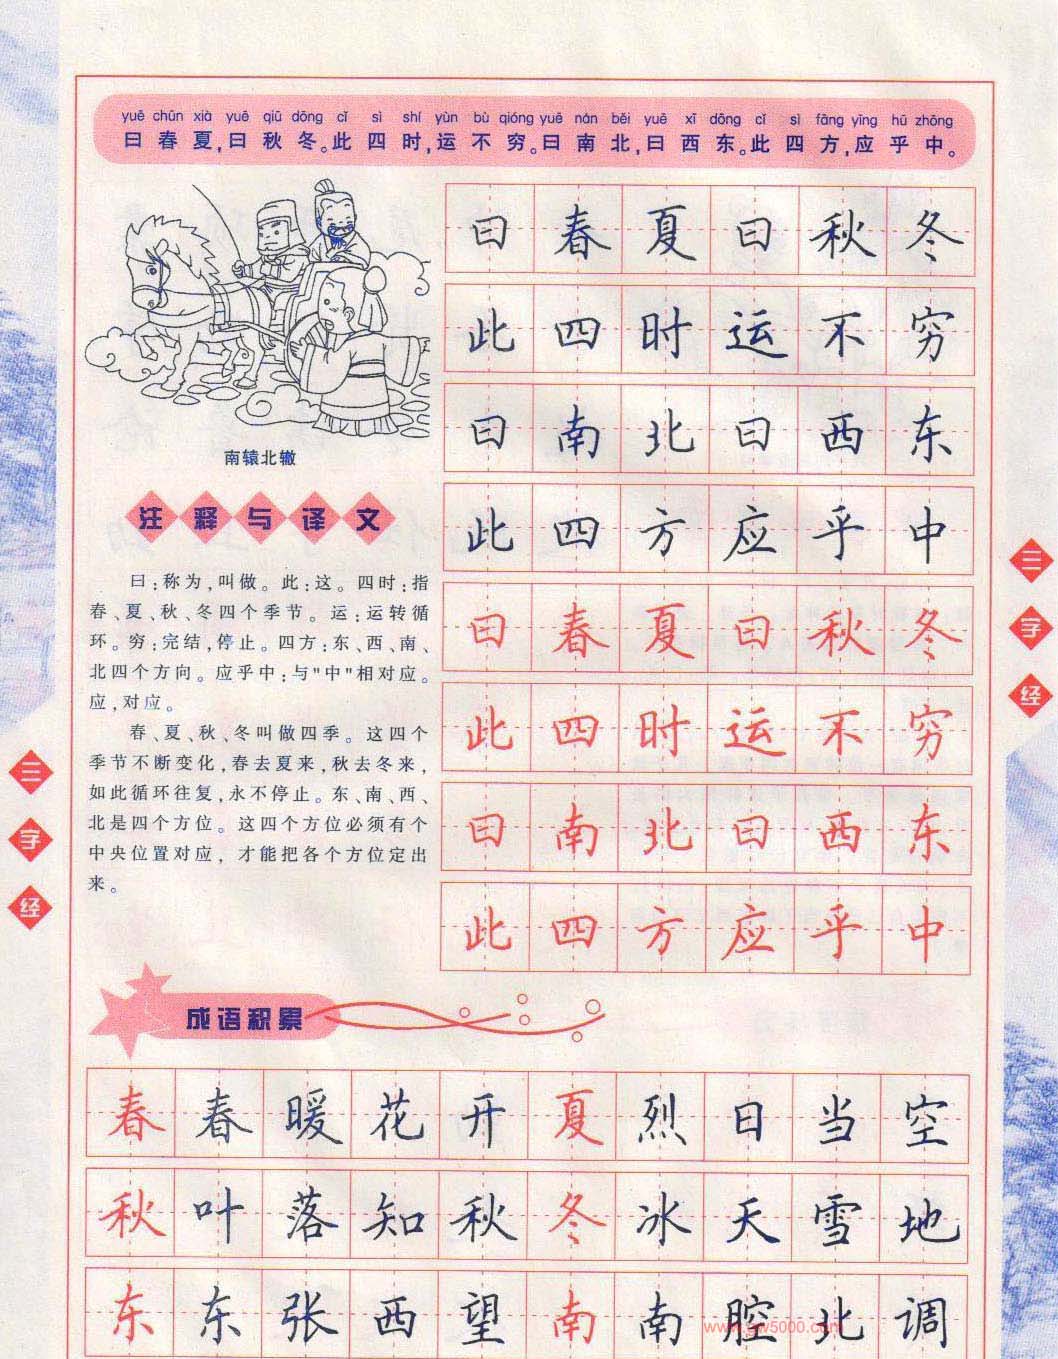 yuē chūn xià yuē qiū dōng cǐ sì shí yùn bù qióng yuē nán běi yuē xī dōng cǐ sì fāng yīng hū zhōng
曰春夏,曰秋冬。此四时,运不穷。曰南北,曰西东。此四方,应乎中。
南辕北辙
注释与译文
曰:称为,叫做。此:这。四时:指
春、夏、秋、冬四个季节。运:运转循
环。穷:完结,停止。四方:东、西、南、
北四个方向。应乎中:与"中"相对应。
应,对应。
春、夏、秋、冬叫做四季。这四个
季节不断变化,春去夏来,秋去冬来,
如此循环往复,永不停止。东、南、西、
北是四个方位。这四个方位必须有个
中央位置对应,才能把各个方位定出
来。
曰春夏曰秋冬
此四时运不穷
曰南北曰西东
此四方应乎中
曰春夏曰秋冬
此四时运不穷
曰南北曰西东
此四方应乎中
三字经
三字经
成语积累
春春暖花开夏烈日当空
秋叶落知秋冬冰天雪地
东东张西望南南腔北调
www.gw5000.com